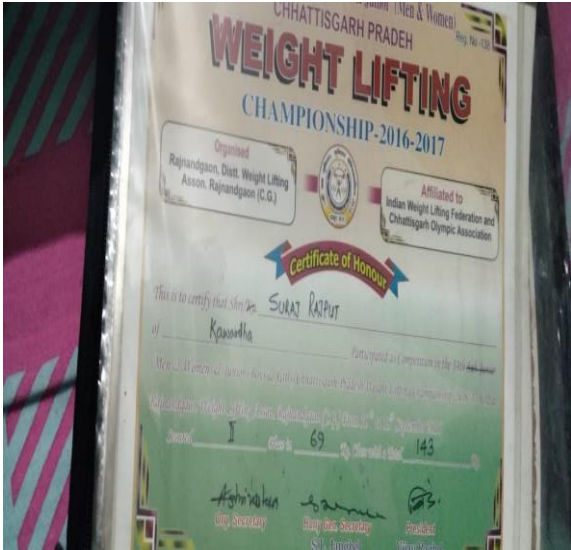 (Men & Women)
CHHATTISGARH PRADEH
Reg. No -138
WEIGHT LIFTING
CHAMPIONSHIP-2016-2017
Organised
Rajnandgaon, Distt. Weight Lifting
Asson. Rajnandgaon (C.G.)
Affiliated to
Indian Weight Lifting Federation and
Chhattisgarh Olympic Association
Certificate of Honour
This is to certify that Shri SURAJ RAJPUT
of Kawardha Participated as Competitor in the
Men & Women
Rajnandgaon Weight Lifting Asson. Rajnandgaon
Secured II place in 69 Kg. Class with a Total 143 Kg
Org. Secretary Hony. Gen. Secretary President